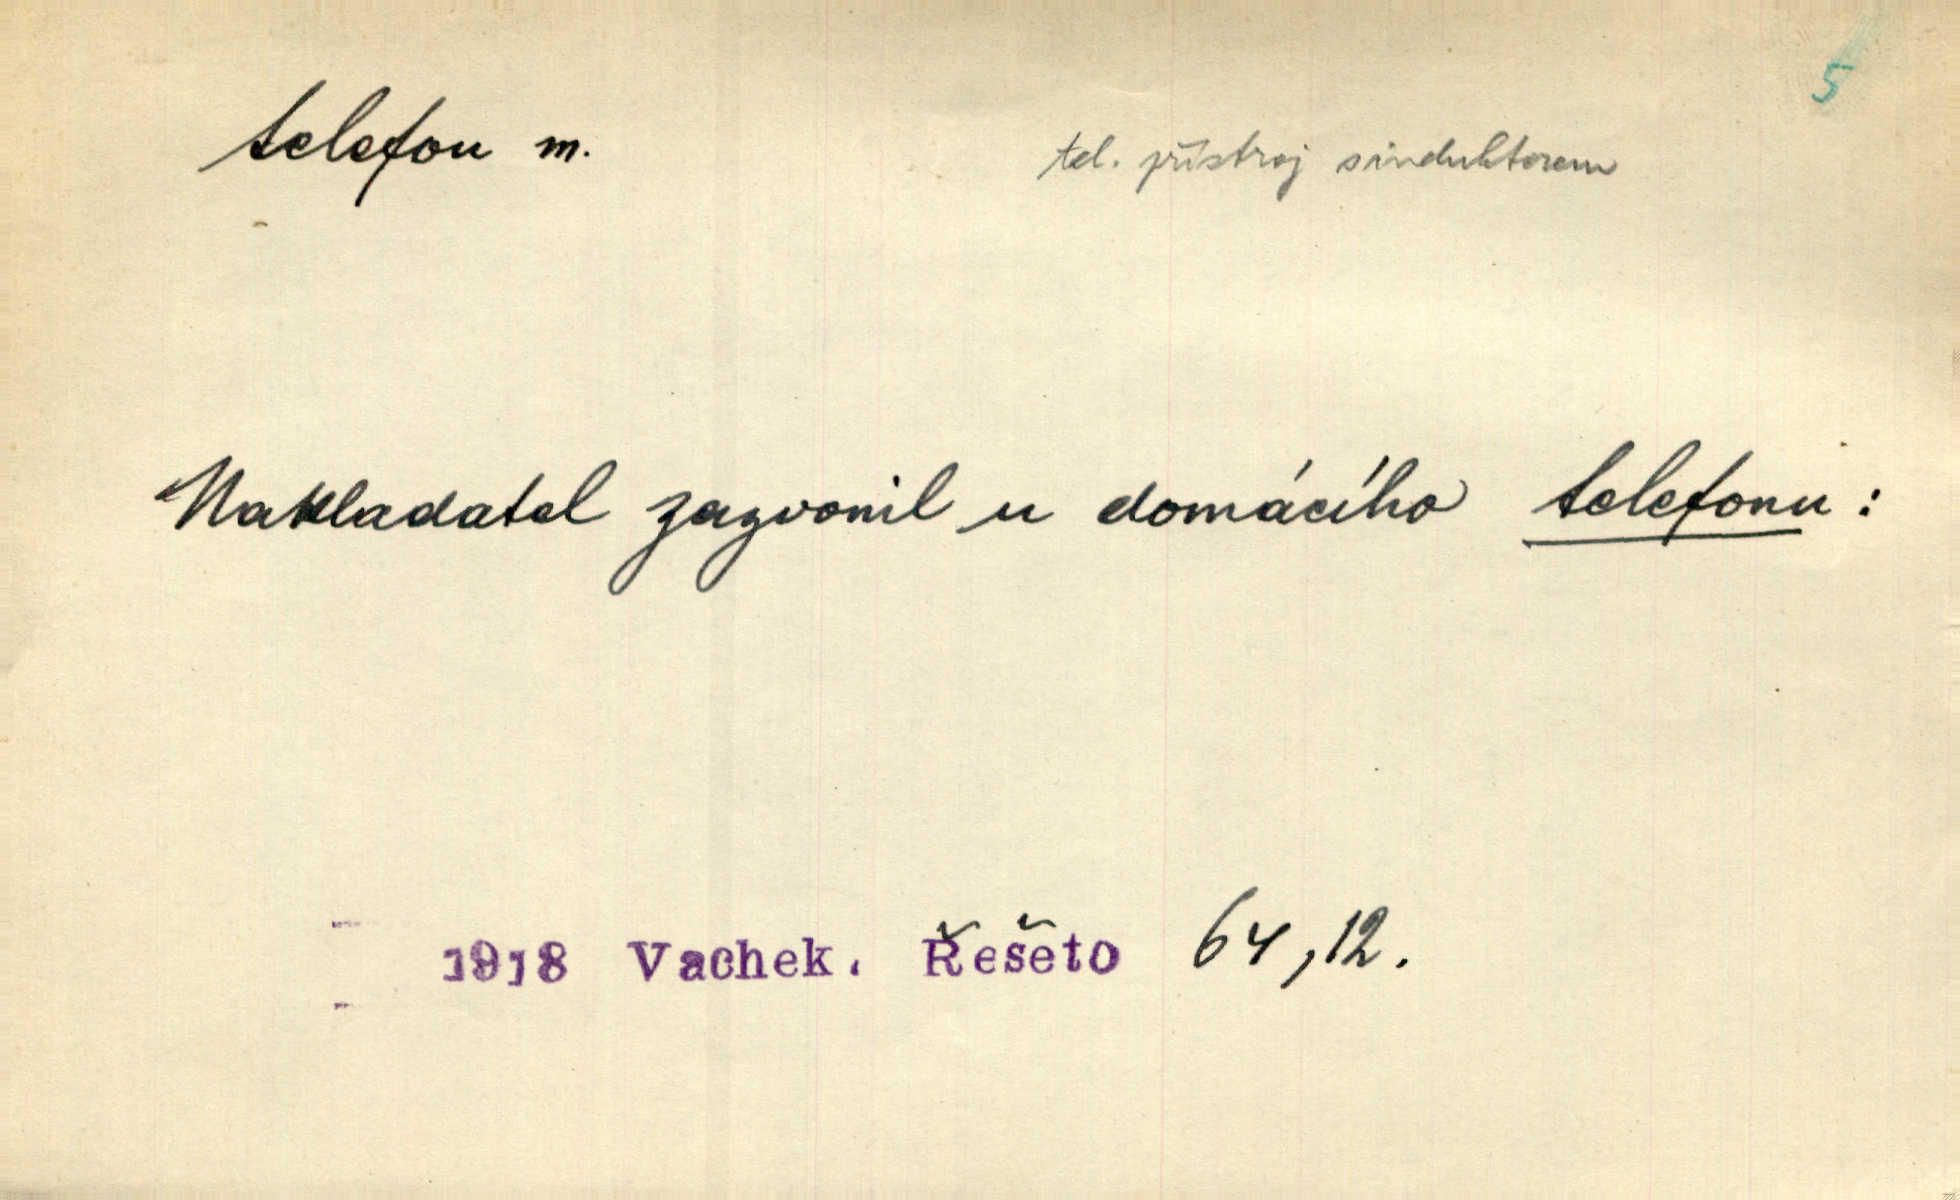 5
telefon m. tel. přístroj s induktorem
Nakladatel zazvonil u domácího telefonu:
1918 Vachek. Řešeto 64,12.